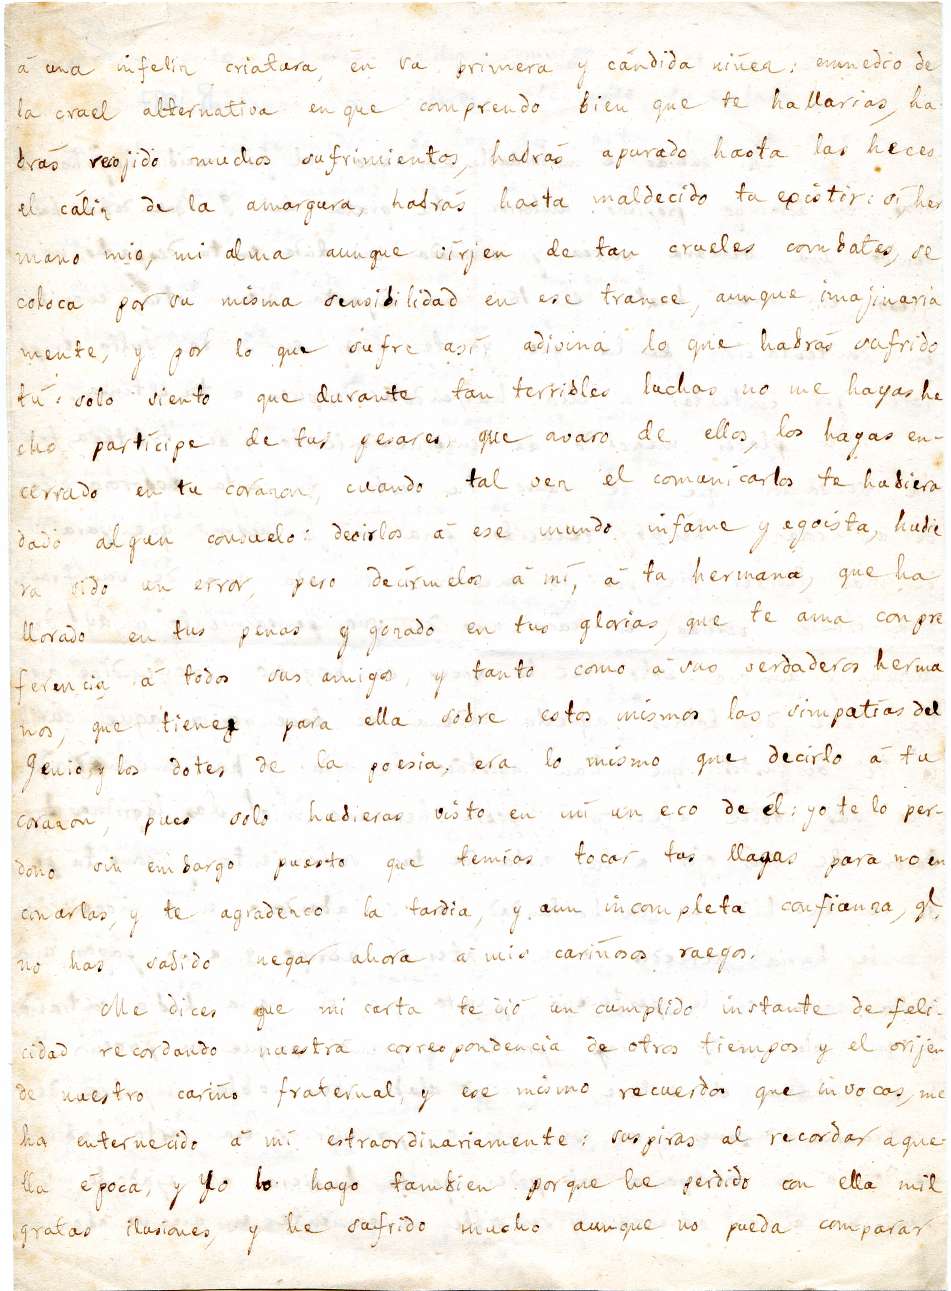 á una infeliz criatura, en su primera y cándida niñez: enmedio de
la cruel alternativa en que comprendo bien que te hallarias, ha
brás recojido muchos sufrimientos, habrás apurado hasta las heces
el cáliz de la amargura, habrás hasta maldecido tu existir: si, her
mano mio, mi alma aunque virjen de tan crueles combates, se
coloca por su misma sensibilidad en ese trance, aunque imajinaria
mente, y por lo que sufre asi adivina lo que habrás sufrido
tú: solo siento que durante tan terribles luchas no me hayas he
cho participe de tus pesares, que avaro de ellos, los hayas en-
cerrado en tu corazon, cuando tal vez el comunicarlos te hubiera
dado algun consuelo: decirlos á ese mundo infame y egoista, hubie
ra sido un error, pero decirmelos á mi, á tu hermana, que ha
llorado en tus penas y gozado en tus glorias, que te ama con pre
ferencia á todos sus amigos, y tanto como á sus verdaderos herma
nos, que tienes para ella sobre estos mismos las simpatias del
Genio, y los dotes de la poesia, era lo mismo que decirlo á tu
corazon, pues solo hubieras visto en mi un eco de él: yo te lo per-
dono sin embargo puesto que temias tocar tus llagas para no en
conarlas, y te agradezco la tardia, y aun incompleta confianza, q.^e
no has sabido negar ahora á mis cariñosos ruegos.
Me dices que mi carta te dió un cumplido instante de feli-
cidad recordando nuestra correspondencia de otros tiempos y el orijen
de nuestro cariño fraternal, y ese mismo recuerdo que invocas, me
ha enternecido á mi estraordinariamente: suspiras al recordar aque-
lla época, y yo lo hago tambien porque he perdido con ella mil
gratas ilusiones, y he sufrido mucho aunque no pueda comparar